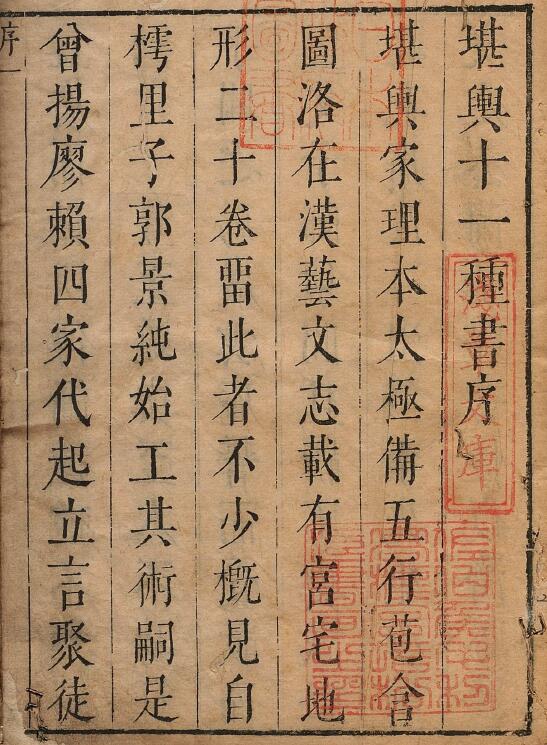 堪輿十一種書序
堪輿家理本太極備五行苞含
圖洛在漢藝文志載有宮宅地
形二十卷畱此者不少概見自
樗里子郭景純始工其術嗣是
曾揚廖賴四家代起立言聚徒
序一